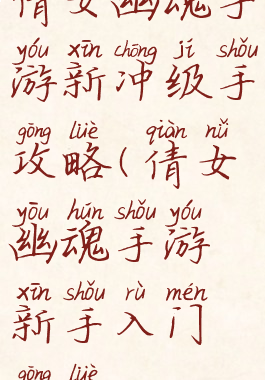 倩女幽魂手
yóu xīn chōng jí shǒu
游新冲级手
gōng lüè qiàn nǚ
攻略(倩女
yōu hún shǒu yóu
幽魂手游
xīn shǒu rù mén
新手入门
gōng lüè